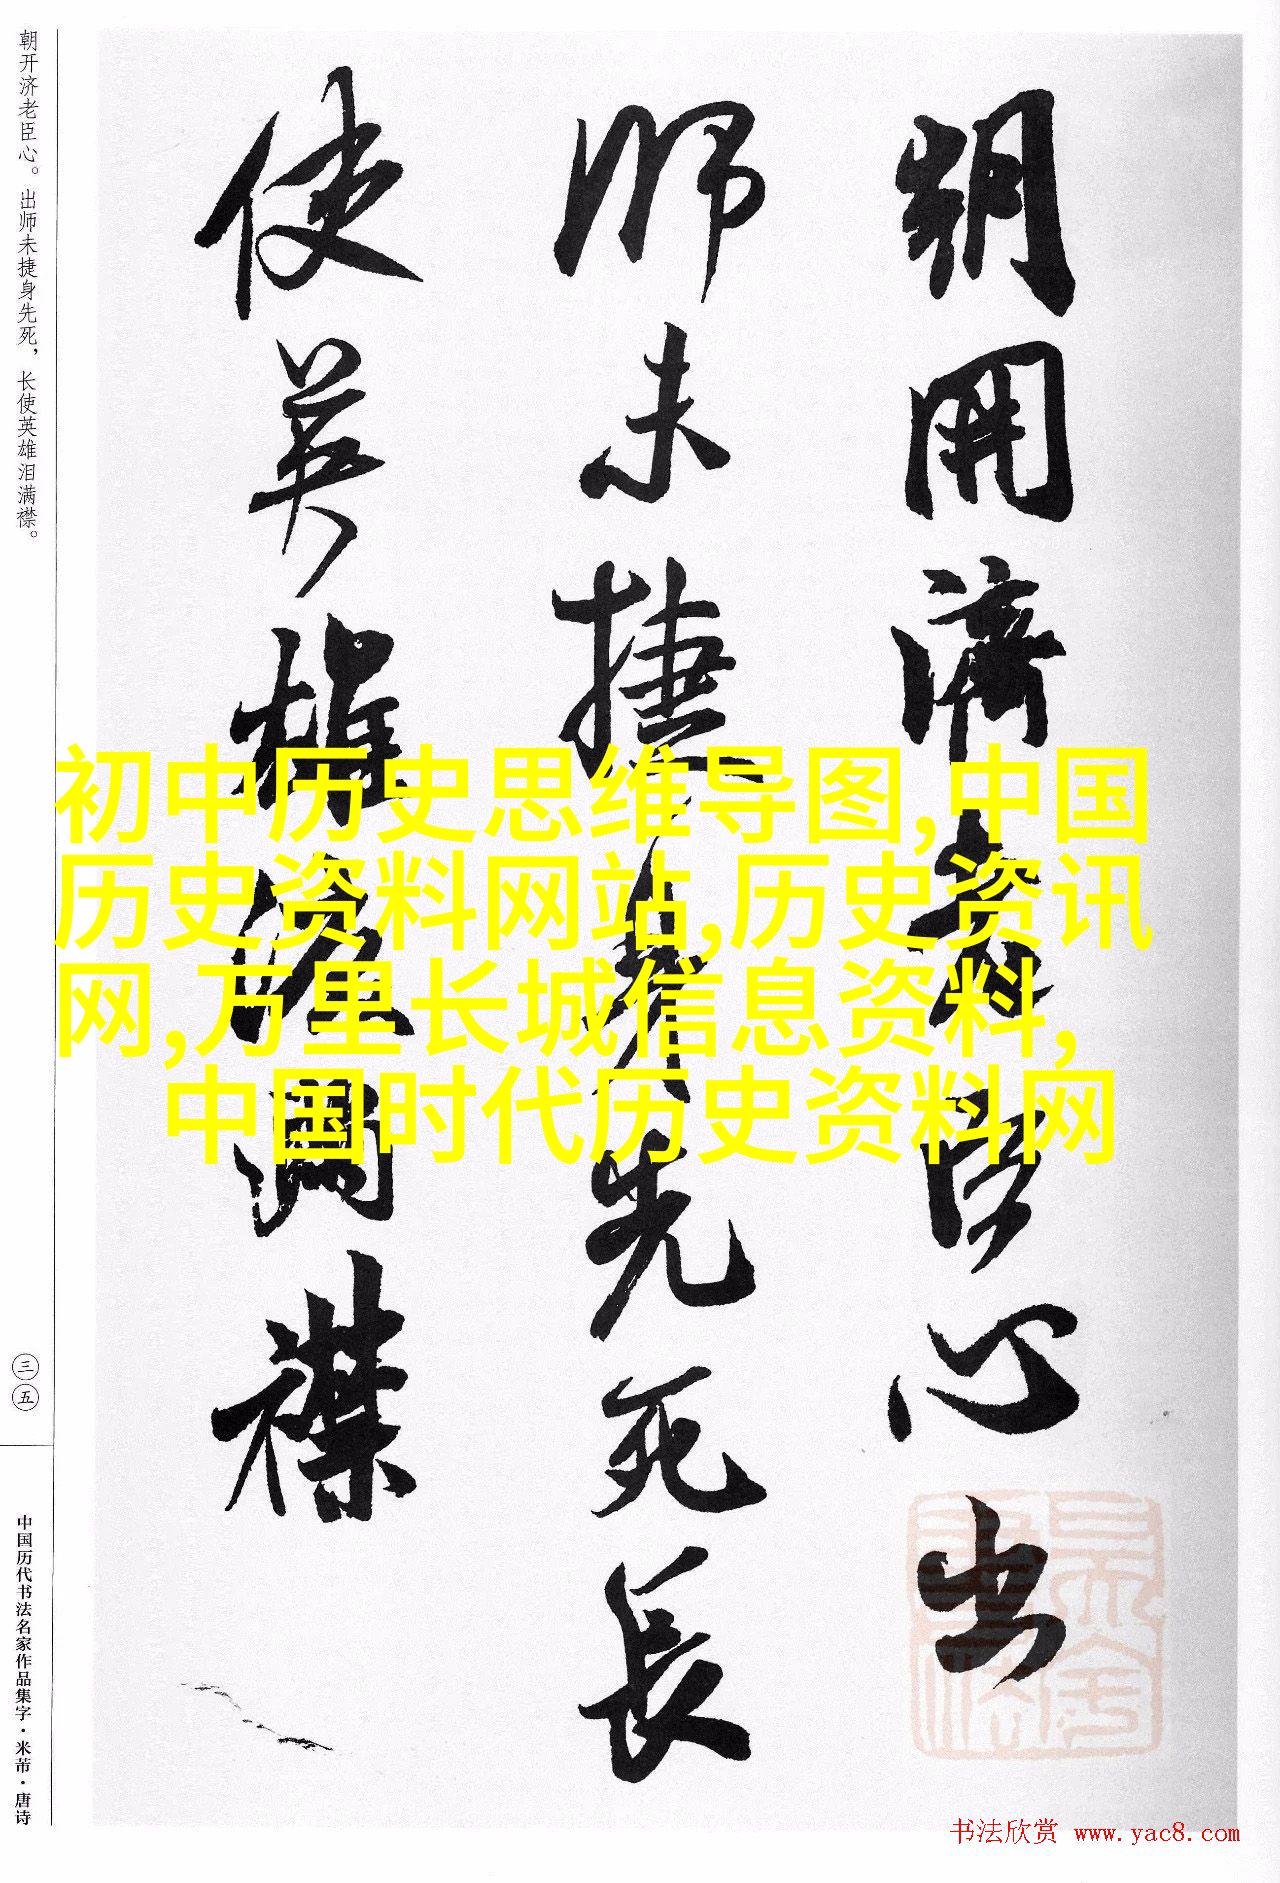 朝開濟老臣心出
師未捷身先死長
使英雄淚滿襟
朝开济老臣心。出师未捷身先死，长使英雄泪满襟。
三五
中国历代书法名家作品集字·米芾·唐诗
初中历史思维导图,中国
历史资料网站,历史资讯
网,万里长城信息资料,
中国时代历史资料网
书法欣赏 www.yac8.com